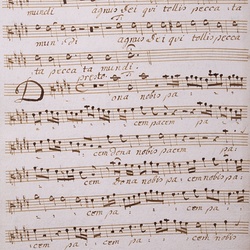 mundi agnus dei qui tollis pecca ta
mun di agnus dei qui tollis
ta pecca ta mundi
presto
Dona nobis pa
cem pacem pa
cem dona nobis pacem
cem dona nobis pa
cem pa
cem pa cem nobis